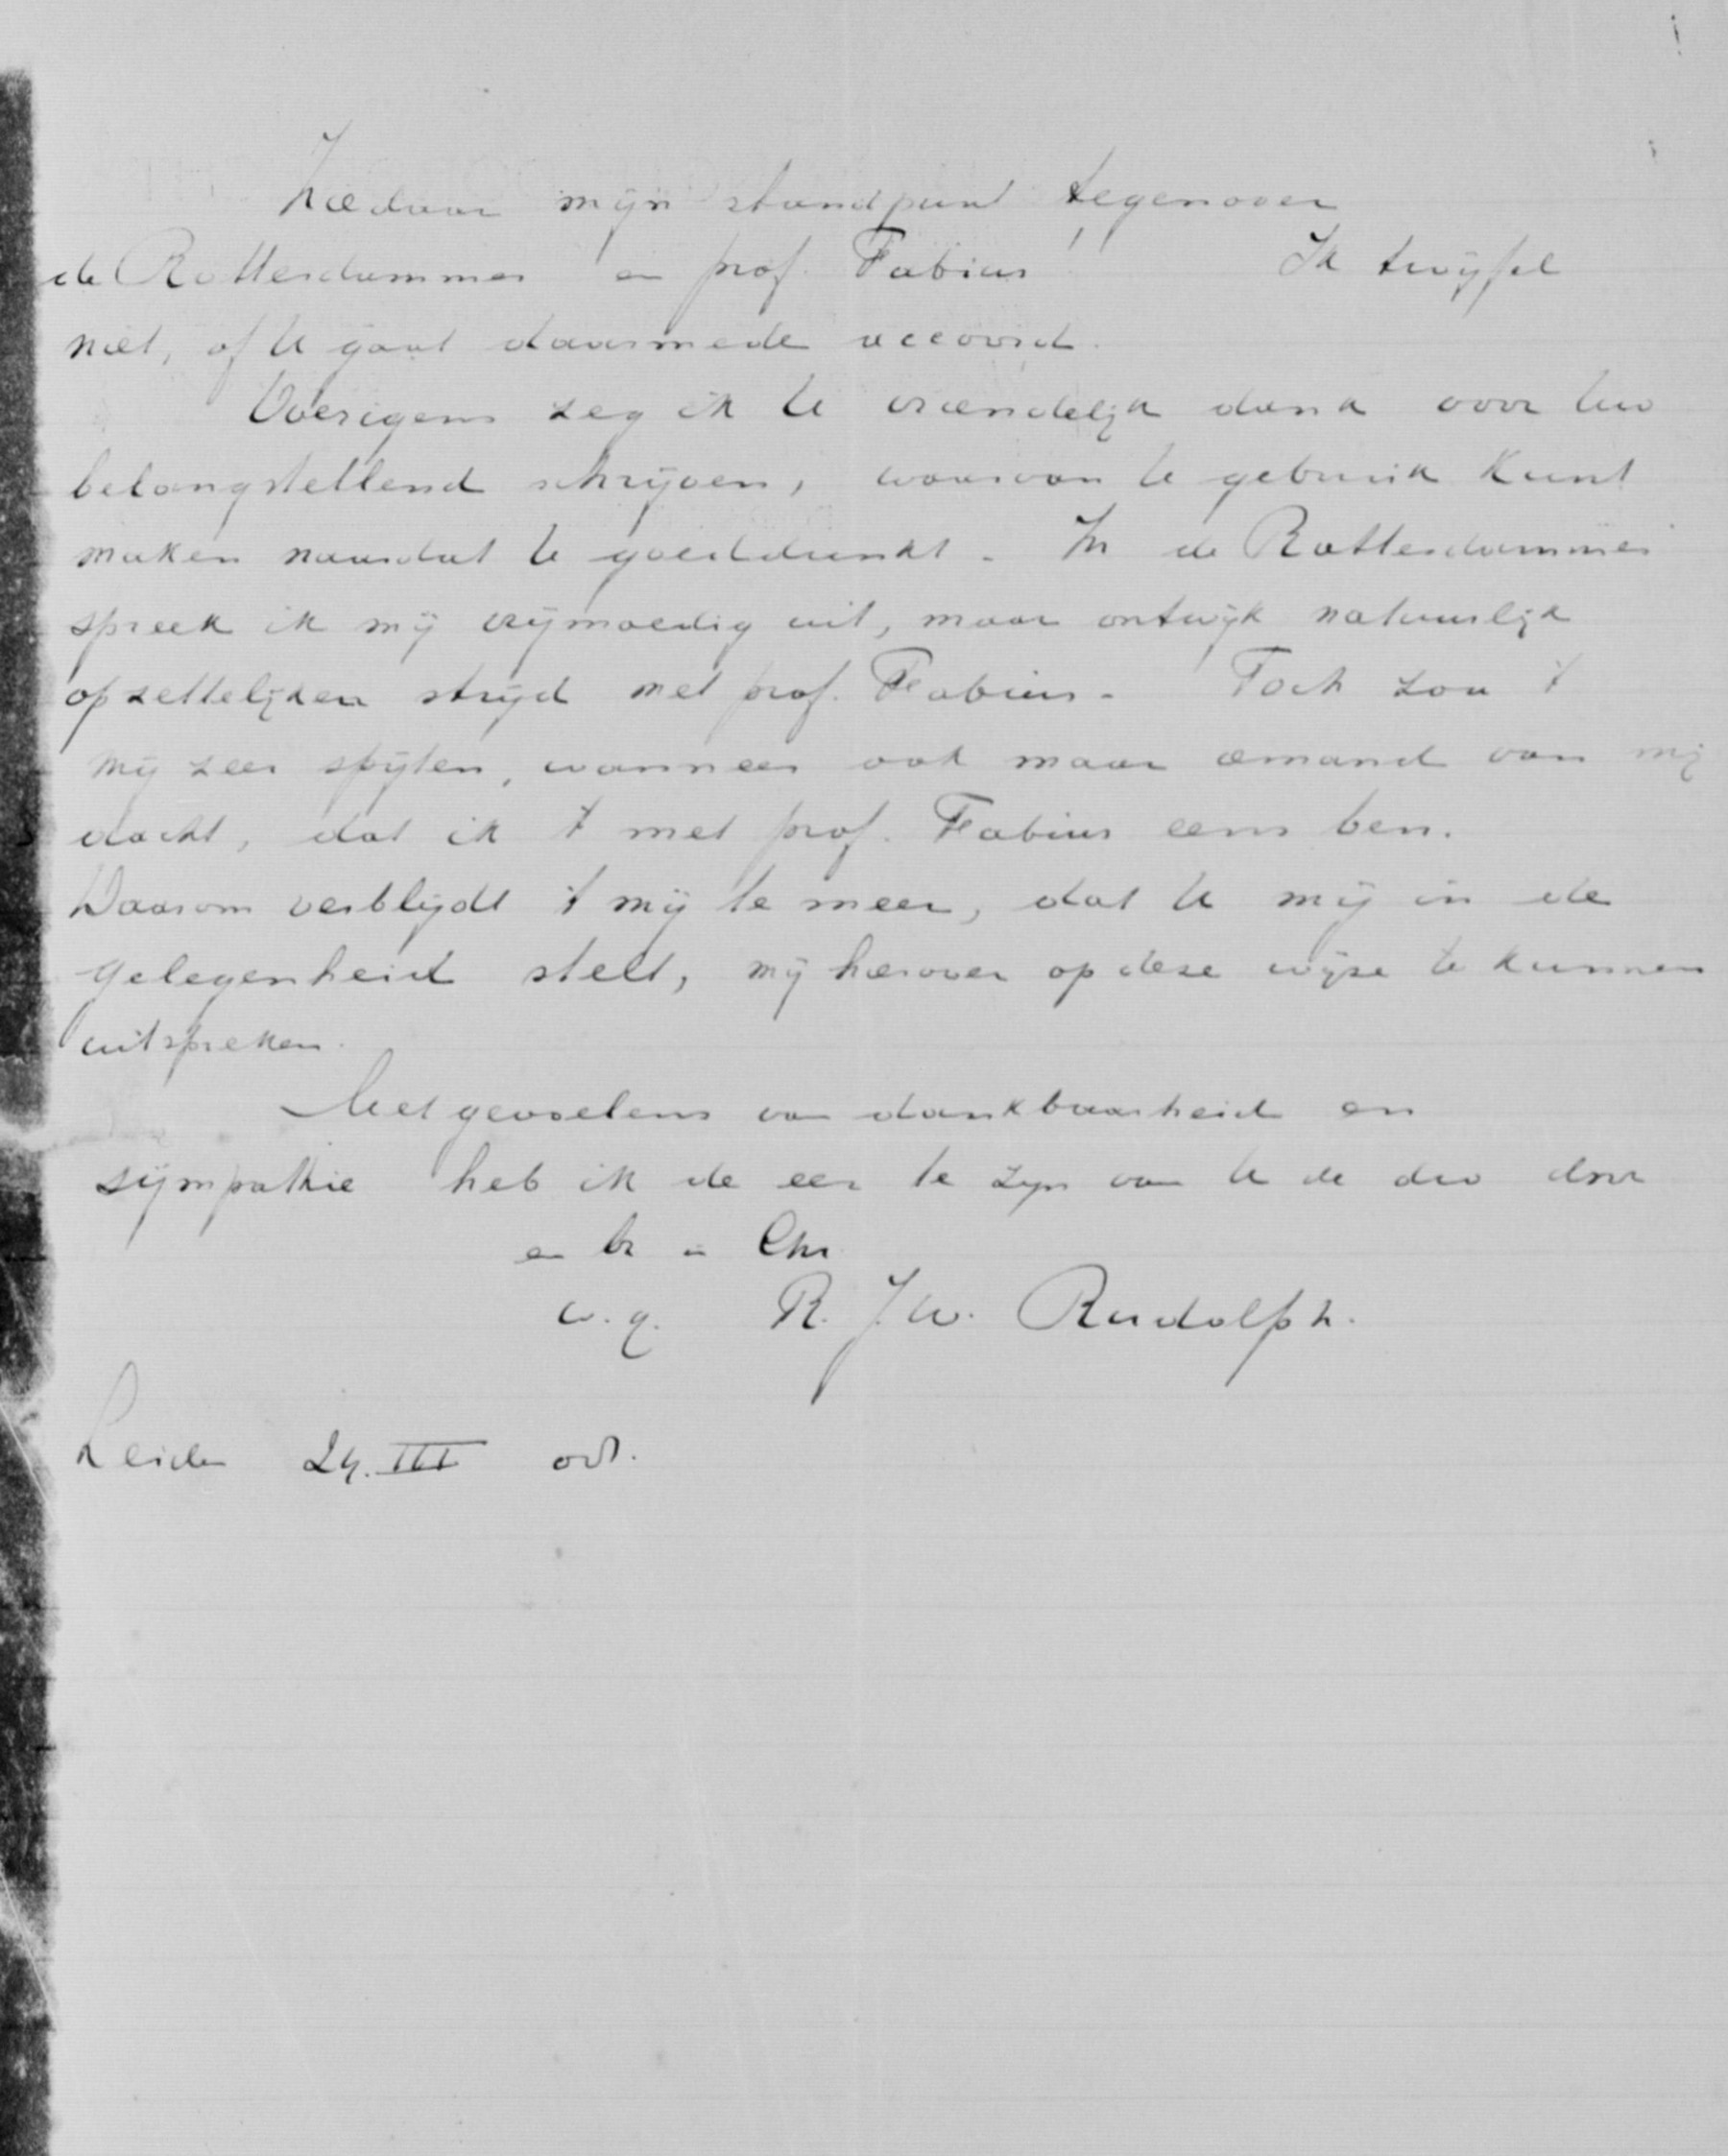 Ziedaar mijn standpunt tegenover
de Rotterdammer en prof. Fabius! Ik twijfel
niet, of U gaat daarmede accoord.
Overigens zeg ik U vriendelijk dank voor Uw
belangstellend schrijven, waarvan U gebruik kunt
maken naardat U goeddunkt. In de Rotterdammer
spreek ik mij vrijmoedig uit, maar ontwijk natuurlijk
opzettelijken strijd met prof. Fabius. Toch zou 't
mij zeer spijten, wanneer ook maar iemand van mij
dacht, dat ik 't met prof. Fabius eens ben.
Daarom verblijdt 't mij te meer, dat U mij in de
gelegenheid stelt, mij hierover op deze wijze te kunnen
uitspreken.
Met gevoelens van dankbaarheid en
sympathie heb ik de eer te zijn van U de dw dnr
en br in Chr
w.g. R. J. W. Rudolph.
Leiden 24. III